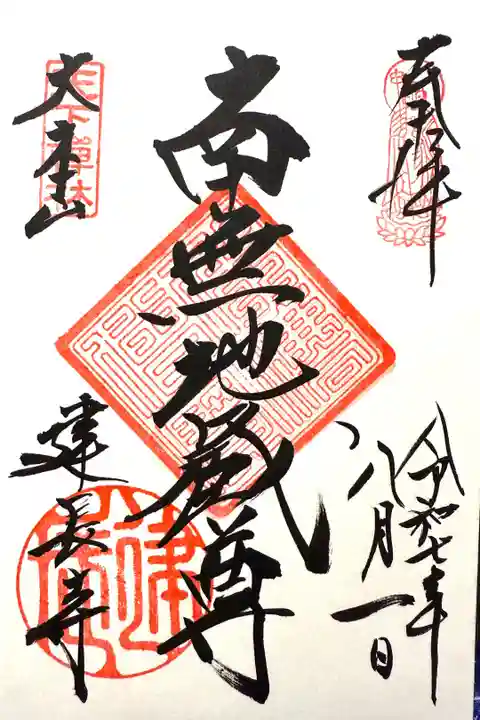 奉拝
令和七年
八月一日
南無地蔵尊
天下禅林
大本山
建長寺